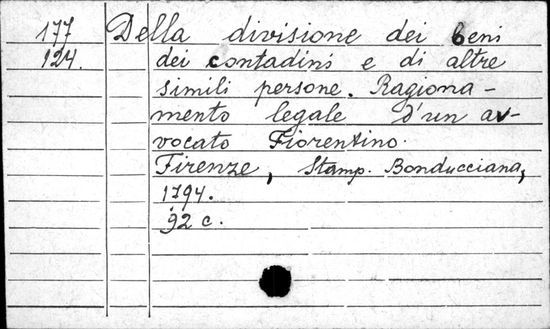 177 Della divisione dei beni
124. dei contadini e di altre
simili persone. Ragiona-
mento legale d'un av-
vocato Fiorentino.
Firenze, Stamp. Bonducciana,
1794.
92 c.